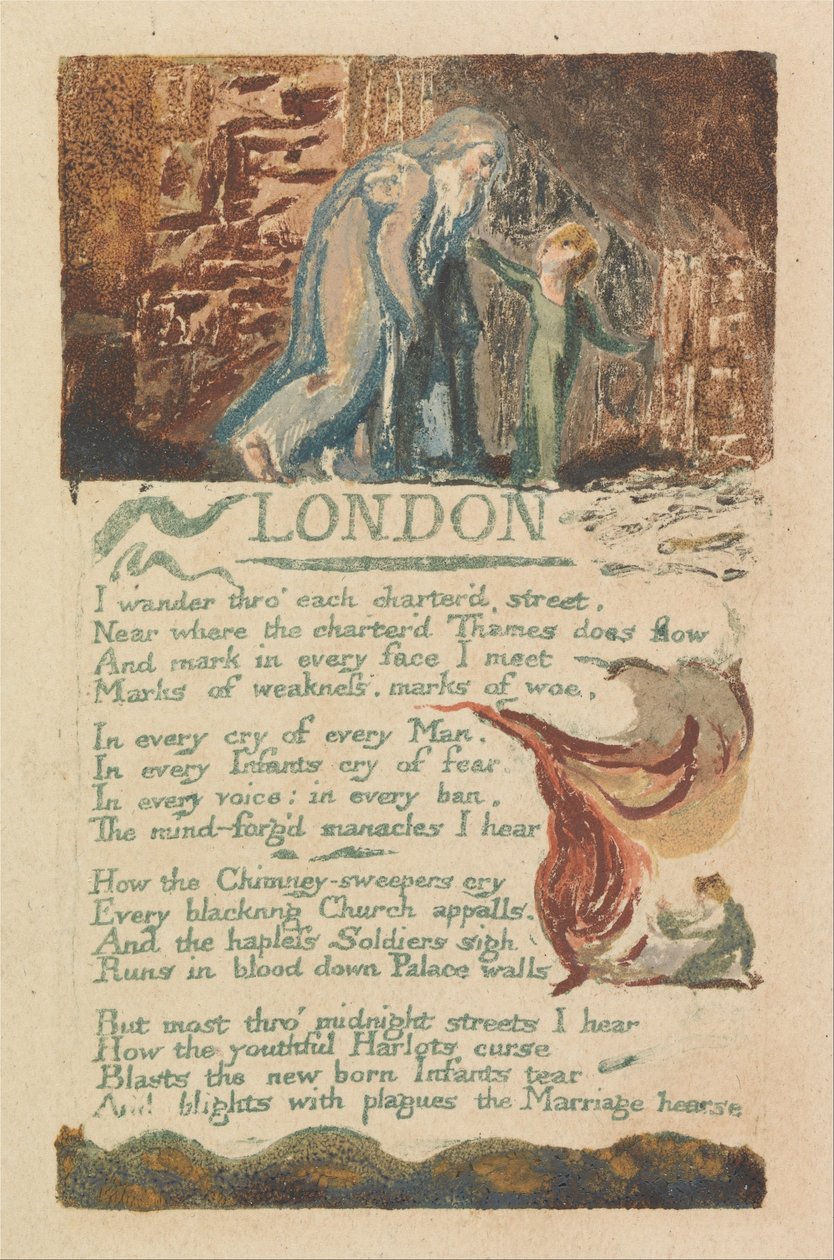 LONDON
I wander thro' each charter'd street,
Near where the charter'd Thames does flow
And mark in every face I meet
Marks of weakneſs, marks of woe,
In every cry of every Man,
In every Infants cry of fear,
In every voice: in every ban,
The mind-forg'd manacles I hear
How the Chimney-sweepers cry
Every blackning Church appalls,
And the hapleſs Soldiers sigh
Runs in blood down Palace walls
But most thro' midnight streets I hear
How the youthful Harlots curse
Blasts the new born Infants tear
And blights with plagues the Marriage hearse